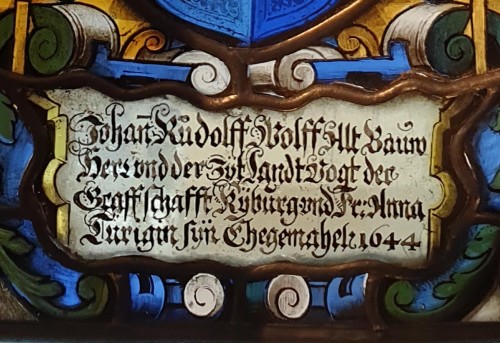 Johan̄ Rudolff Wolff Alt Bauw
Herr vnd der Zyt Landt Vogt der
Graffschafft Kÿburg vnd Fr: Anna
Turigin sÿn Ehegemahel: 1644